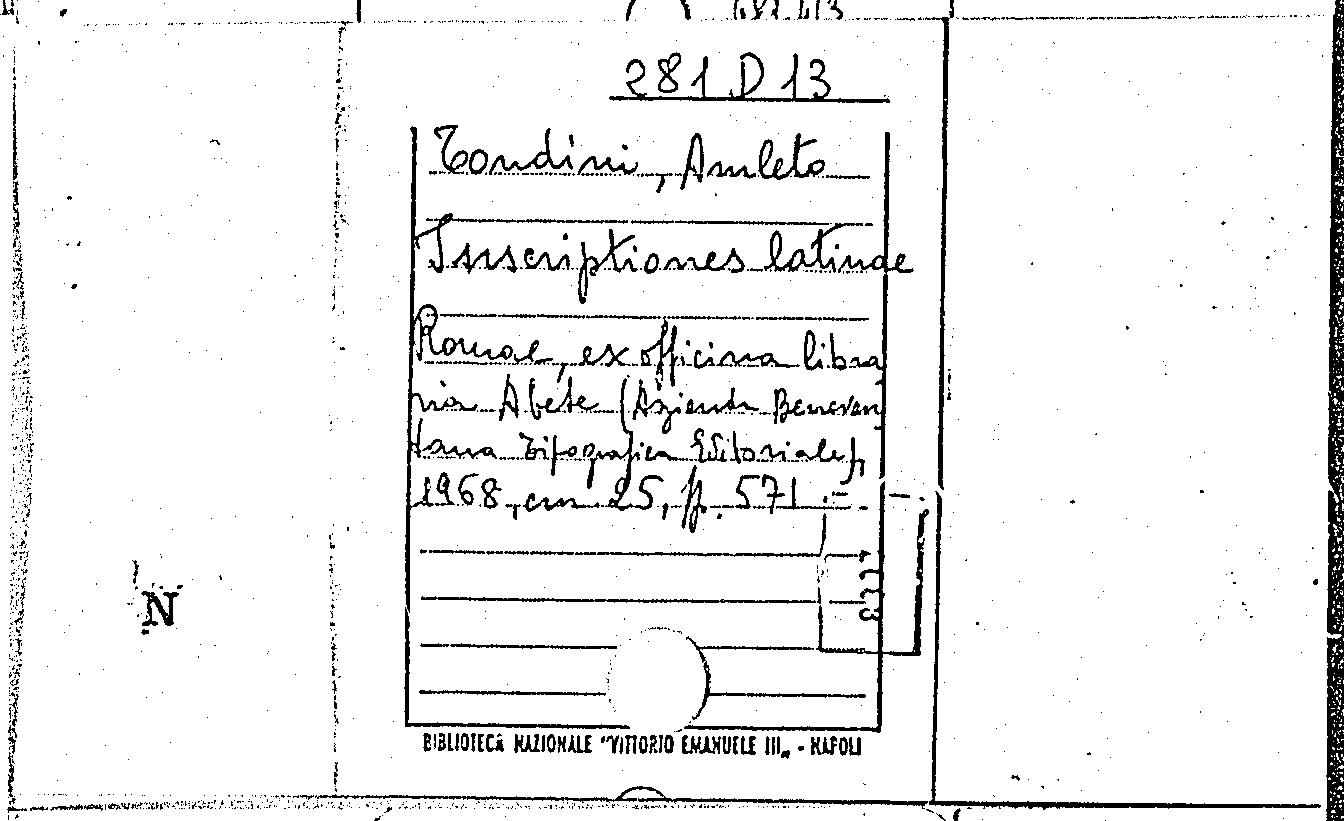 281 D 13
Tondini, Amleto
Inscriptiones latinae
Romae, ex officina libra
ria Abete (Azienda Beneven
tana Tipografica Editoriale),
1968, cm. 25, pp. 571.-
N
BIBLIOTECA NAZIONALE "VITTORIO EMANUELE III„ - NAPOLI